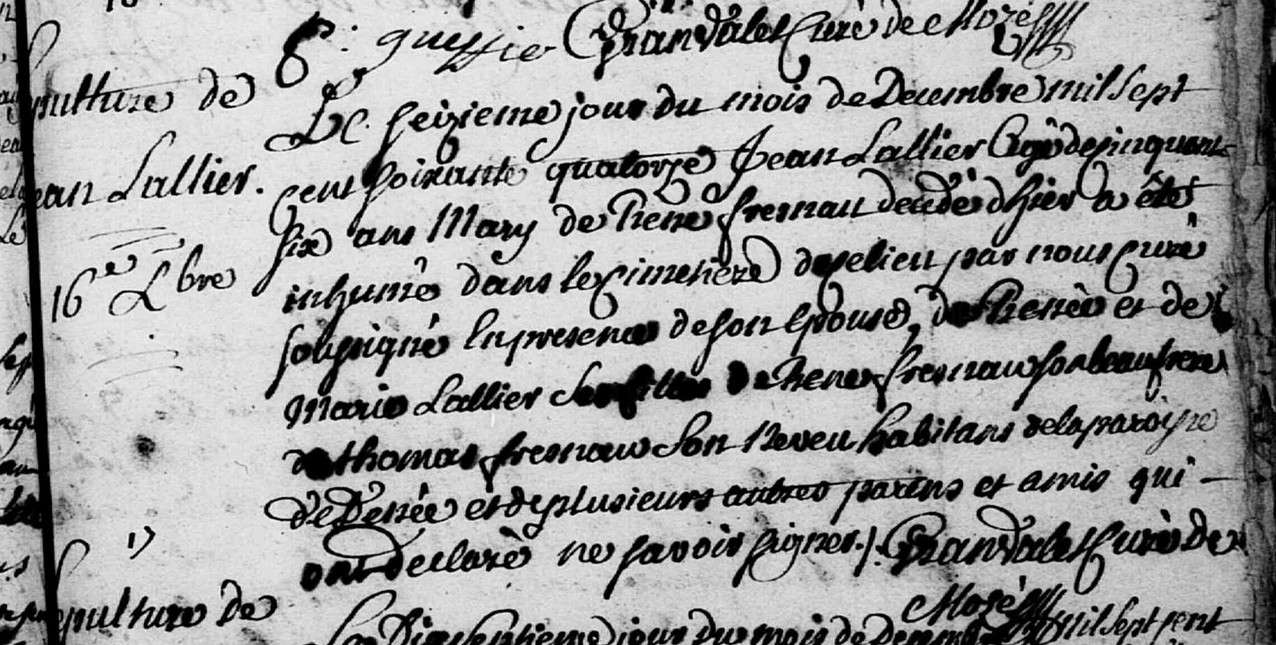 P: gueffier Grandvalet Curé de Mozé
pulture de
ean Lallier.
16e Xbre
Le seizieme jour du mois de Decembre mil sept
cent soixante quatorze Jean Lallier agé de cinquante
six ans Mary de Renée fresnau decedé d'hier a été
inhumé dans le cimetiere de ce lieu par nous Curé
soussigné en presence de son epouse, de Renée et de
Marie Lallier ses filles de Rene fresnau son beaufrere
de thomas fresnau son Neveu habitans de la paroisse
de Denée et de plusieurs autres parens et amis qui
ont declaré ne savoir signer./. Grandvalet Curé de
Mozé
pulture de
Le Dixseptieme jour du mois de Decembre mil sept cent